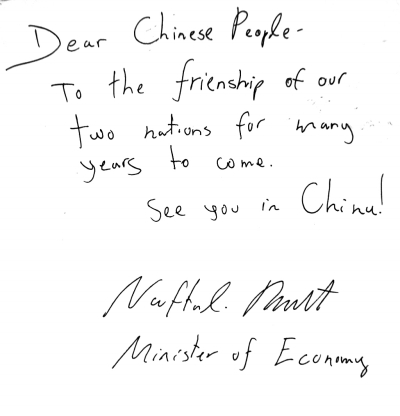 Dear Chinese People-
To the frienship of our
two nations for many
years to come.
See you in China!
Naftali Bennett
Minister of Economy